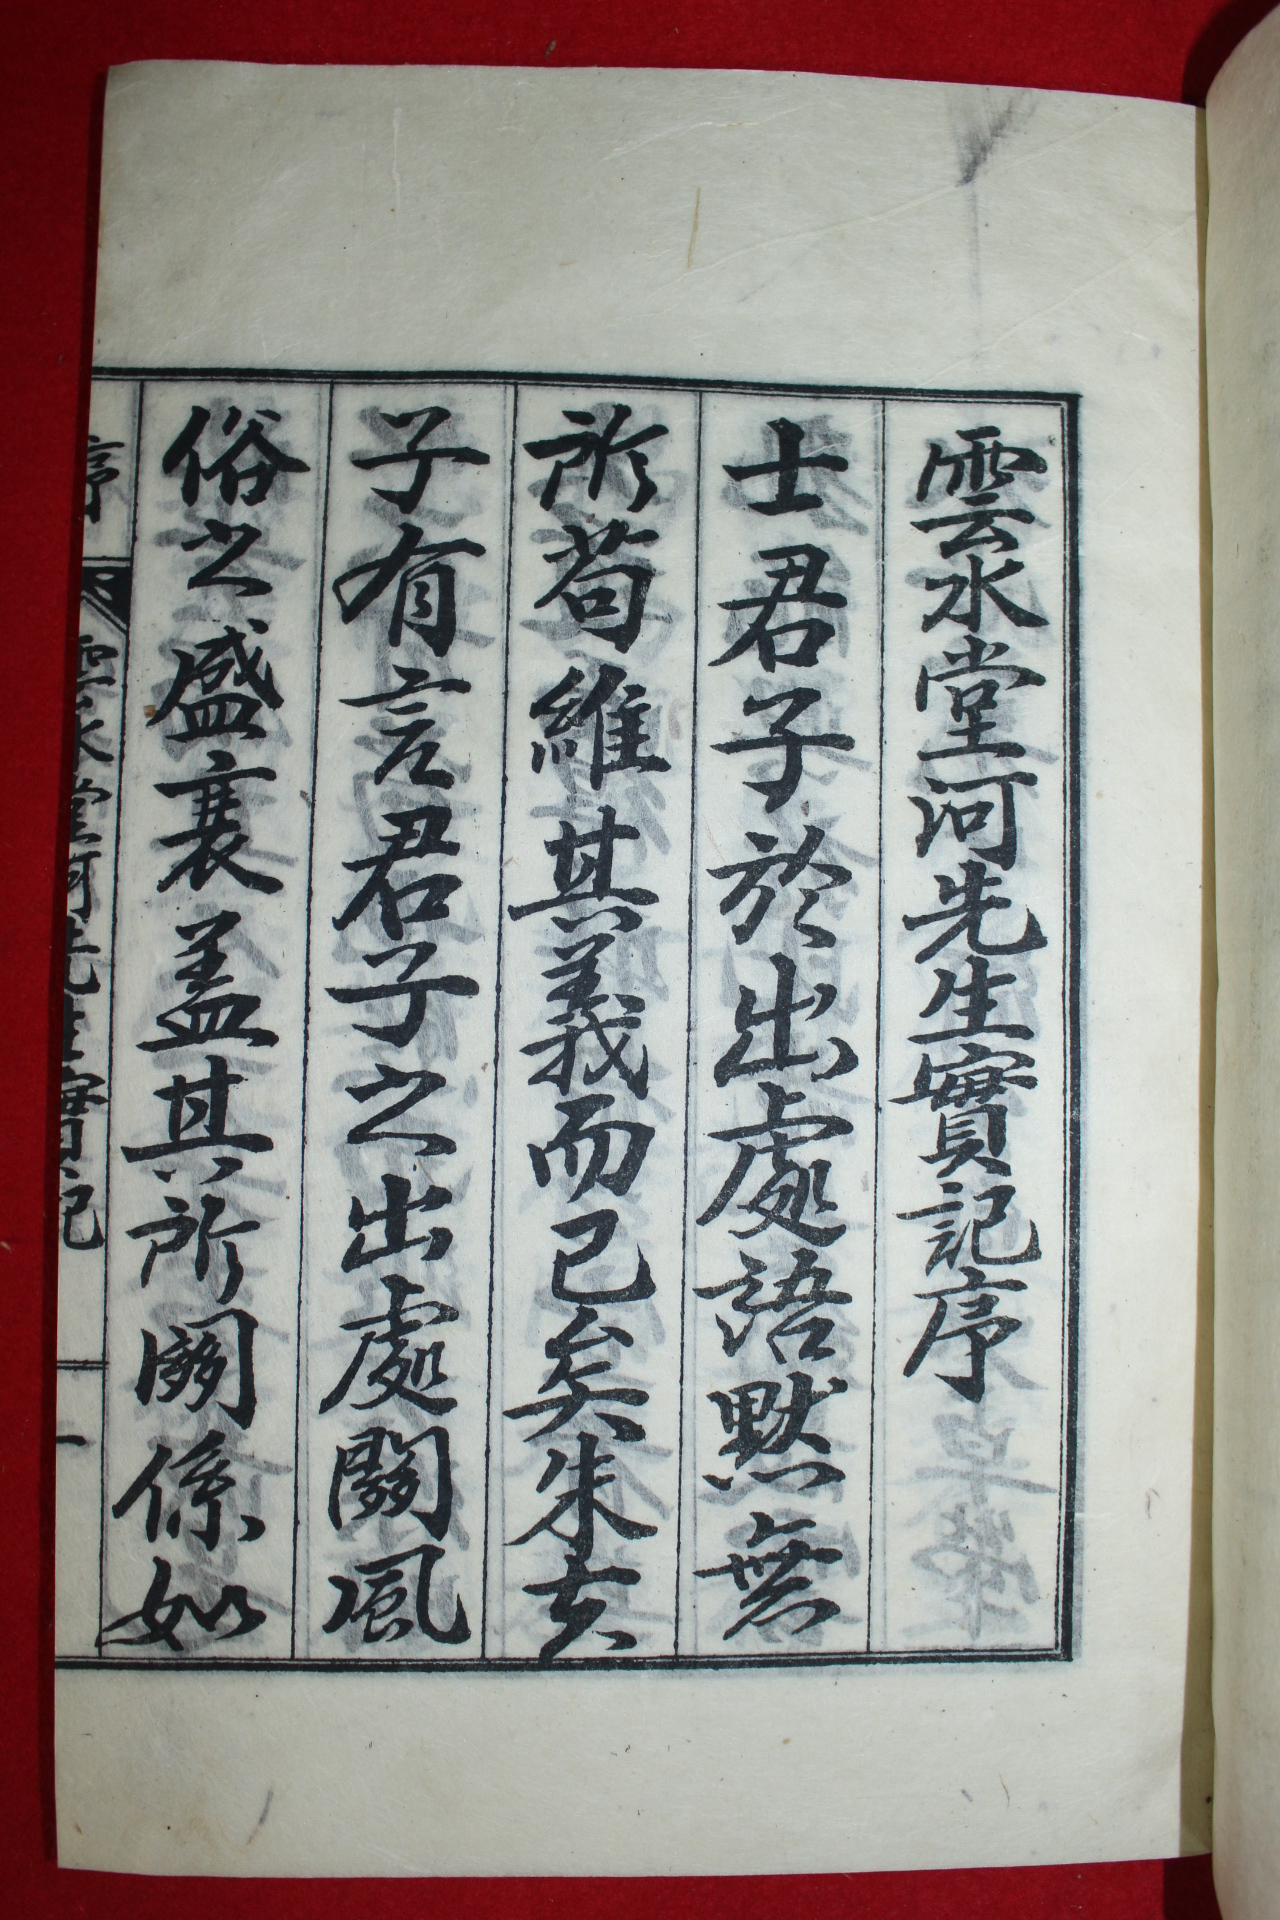 雲水堂河先生實記序
士君子於出處語默無
所苟維其義而已矣朱夫
子有言君子之出處關風
俗之盛衰盖其所關係如
序 雲水堂河先生實記 一